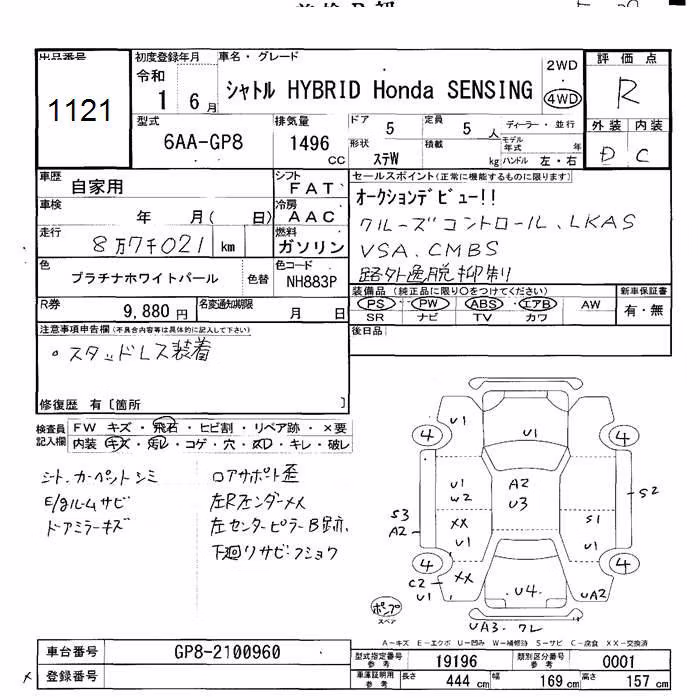 出品番号
1121
初度登録年月
令和
1 6月
車名・グレード
シャトル HYBRID Honda SENSING
2WD
4WD
評価点
R
型式
6AA-GP8
排気量
1496
CC
ドア 5
定員 5 人
ディーラー・並行
形状 ステW
積載 kg
モデル年式 年
ハンドル 左・右
外装 内装
D C
車歴
自家用
シフト
FAT
車検
年 月( 日)
冷房
AAC
走行
8万7千021 km
燃料
ガソリン
色
プラチナホワイトパール
色替
色コード
NH883P
R券
9,880 円
名変通知期限
月 日
セールスポイント(正常に機能するものに限ります)
オークションデビュー!!
クルーズコントロール、LKAS
VSA、CMBS
路外逸脱抑制
装備品 (純正品に限り○をつけてください)
PS PW ABS エアB AW
SR ナビ TV カワ
新車保証書
有・無
後日品
注意事項申告欄(不具合内容等は具体的に記入して下さい)
・スタッドレス装着
修復歴 有〔箇所 〕
検査員記入欄
FW キズ・飛石・ヒビ割・リペア跡・×要
内装 キズ・汚レ・コゲ・穴・凹・キレ・破レ
シート、カーペットシミ
E/gルームサビ
ドアミラーキズ
ロアサポート歪
左Rフェンダーメメ
左センターピラーB跡、
下廻りサビ・フショク
U1
U1
4
4
U1
W2
A2
U3
S2
S3
A2
XX
U1
S1
U1
4
4
C2
U1
XX
U4
UA2
ポンプ
スペア
UA3・ワレ
A-キズ E-エクボ U-凹み W-補修跡 S-サビ C-腐食 XX-交換済
車台番号
GP8-2100960
登録番号
型式指定番号参考
19196
類別区分番号参考
0001
車庫証明用参考
長さ 444 cm
幅 169 cm
高さ 157 cm